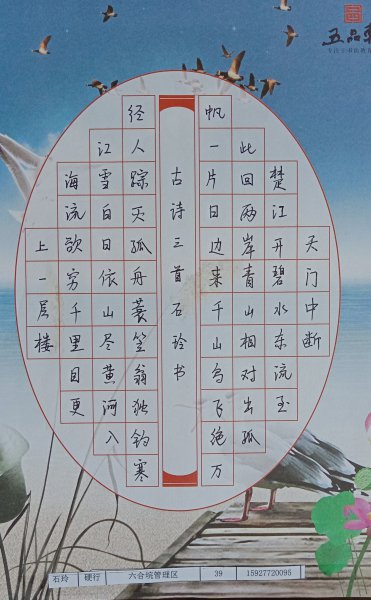 天门中断
楚江开碧水东流至
此回两岸青山相对出孤
帆一片日边来千山鸟飞绝万
古诗三首石玲书
经人踪灭孤舟蓑笠翁独钓寒
江雪白日依山尽黄河入
海流欲穷千里目更
上一层楼
五品
石玲 硬行 六合垸管理区 39 15927720095